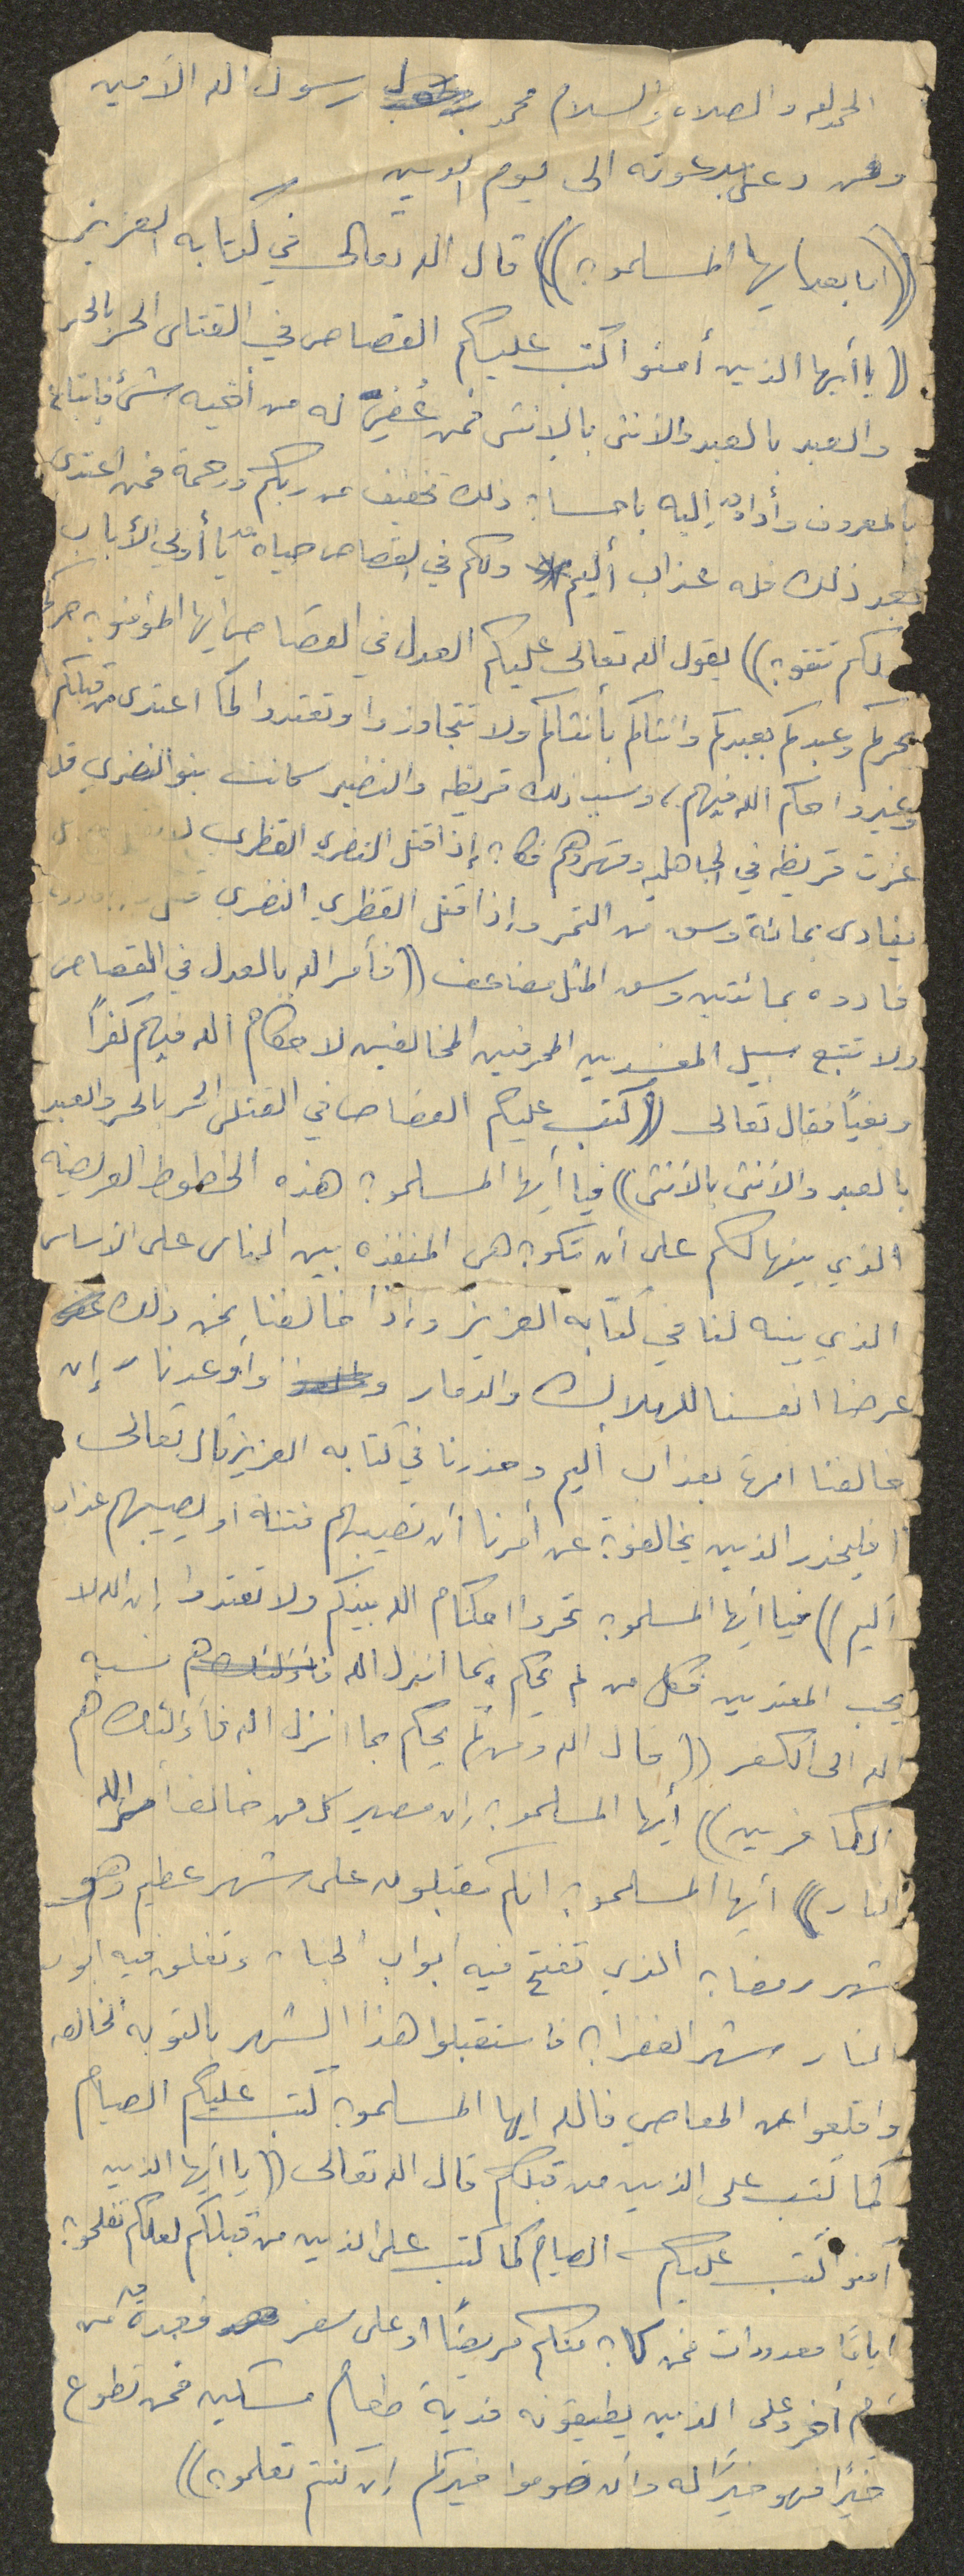 الحمد لله والصلاه والسلام محمد رسول الله الأمين
ومن دعى بدعوته الى يوم الدين
((اما بعد ايها المسلمون)) قال الله تعالى في كتابه العزيز
((يا أيها الذين أمنوا كتب عليكم القصاص في القتلى الحر بالحر
والعبد بالعبد والانثى بالانثى فمن عُفيَ له من أخيه شئ فاتباع
بالمعروف وأداء إليه باحسان ذلك تخفيف من ربكم ورحمة فمن اعتدى
بعد ذلك فله عذاب أليم ولكم في القصاص حياة يا أولي الألباب
لعلكم تتقون)) يقول الله تعالى عليكم العدل في القصاص ايها المؤمنون حركم
بحركم وعبدكم بعبدكم وانثاكم بأنثاكم ولا تتجاوزوا وتعتدوا كما اعتدى من قبلكم
وغيروا حكم الله فيهم، وسبب ذلك قريظه والنضير كانت بنو النضري قد
غزت قريظه في الجاهليه وقهروهم فكان إذا قتل النضري القظري
يفادى بمائة وسق من التمر وإذا قتل القظري النضري قتل
فادوه بمائتين وسق المثل مضاعف ((فأمر الله بالعدل في القصاص
ولا تتبع سبيل المفسدين المحرفين المخالفين لاحكام الله فيهم كفراً
وبغياً فقال تعالى ((كتب عليكم القصاص في القتلى الحر بالحر والعبد
بالعبد والأنثى بالأنثى)) فيا أيها المسلمون هذه الخطوط العريضه
الذي بينها لكم على أن تكون هى المنفذه بين الناس على الاساس
الذي بينه لنا في كتابه العزيز وإذا خالفنا نحن ذلك
عرضنا انفسنا للهلاك والدمار و واوعدنا إن
خالفنا امره بعذاب أليم وحذرنا في كتابه العزيز قال تعالى
((فليحذر الذين يخالفون عن أمرنا أن تصيبهم فتنة او يصيبهم عذاب
أليم)) فيا أيها المسلمون تحروا احكام الله بينكم ولا تعتدوا إن الله لا
يحب المعتدين فكل من لم يحكم بما انزل الله فاؤلئك هم نسبه
الله الى الكفر ((قال الله ومن لم يحكم بما انزل الله فأولئك هم
الكافرين)) أيها المسلمون إن مصير كل من خالف امر الله
النار)) ايها المسلمون انكم مقبلون على شهر عظيم وهو
شهر رمضان الذي تفتح فيه ابواب الجنان وتغلق فيه ابواب
النار شهر الغفران فاستقبلوا هذا الشهر بالتوبه الخالصه
واقلعوا عن المعاصي فالله ايها المسلمون كتب عليكم الصيام
كما كتب على الذين من قبلكم قال الله تعالى ((يا أيها الذين
آمنوا كتب عليكم الصيام كما كتب على الذين من قبلكم لعلكم تفلحون
اياماً معدودات فمن كان منكم مريضاً او على سفر فعدةٌ من
أيام أخر وعلى الذين يطيقونه فدية طعام مسكين فمن تطوع
خيراً فهو خيراً له وأن تصوموا خيركم إن كنتم تعلمون))